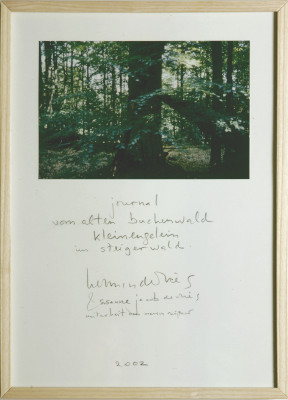 journal
vom alten buchenwald
kleinengelein
im steigerwald
herman de vries
& susanne jacob de vries
2002